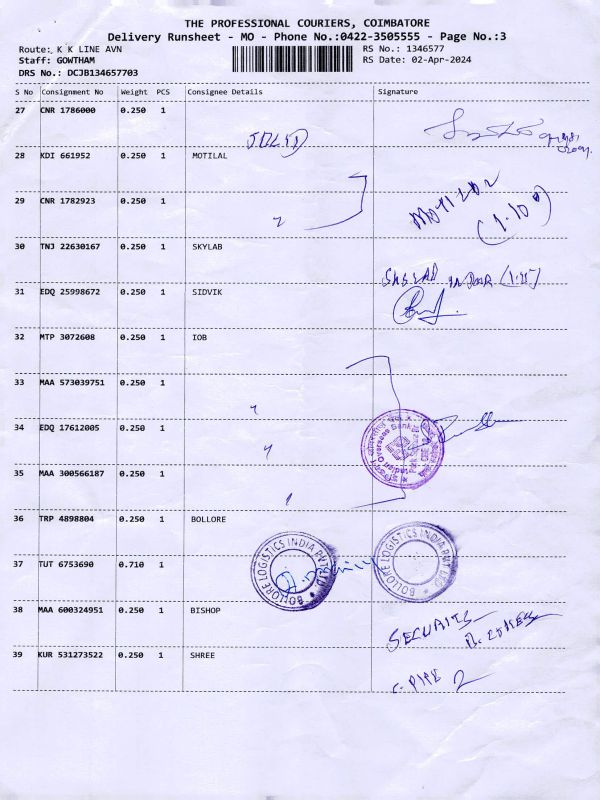 THE PROFESSIONAL COURIERS, COIMBATORE
Delivery Runsheet - MO - Phone No.:0422-3505555 - Page No.:3
Route: K K LINE AVN RS No.: 1346577
Staff: GOWTHAM RS Date: 02-Apr-2024
DRS No.: DCJB134657703
S No Consignment No Weight PCS Consignee Details Signature
27 CNR 1786000 0.250 1
28 KDI 661952 0.250 1 MOTILAL
29 CNR 1782923 0.250 1
MOTILAL
(1.10)
30 TNJ 22630167 0.250 1 SKYLAB
31 EDQ 25998672 0.250 1 SIDVIK
32 MTP 3072608 0.250 1 IOB
33 MAA 573039751 0.250 1
34 EDQ 17612005 0.250 1
Indian Overseas Bank
35 MAA 300566187 0.250 1
36 TRP 4898804 0.250 1 BOLLORE
37 TUT 6753690 0.710 1
BOLLORE LOGISTICS INDIA PVT LTD
BOLLORE LOGISTICS INDIA PVT LTD
38 MAA 600324951 0.250 1 BISHOP
SECURITY
39 KUR 531273522 0.250 1 SHREE